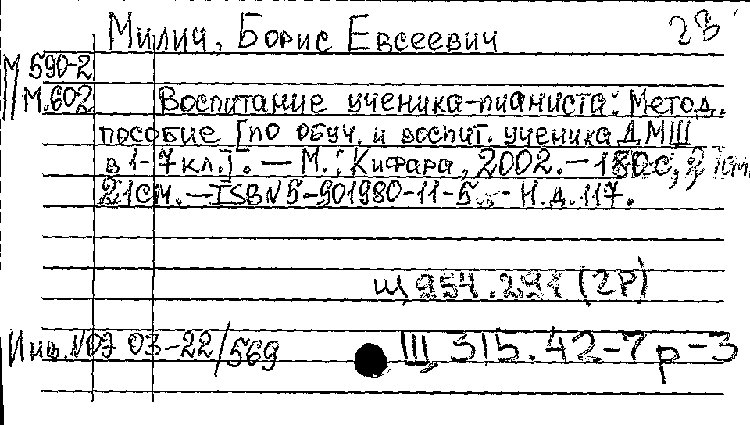 28
Милич, Борис Евсеевич
М 590-2
М.602
Воспитание ученика-пианиста: Метод.
пособие [по обуч. и воспит. ученика ДМШ
в 1-7 кл.]. — М.: Кифара, 2002. — 180с,
21см. — ISBN 5-901980-11-5. — Н.д.117.
Щ 954.291 (2Р)
Инв. N07 03-22/569
Щ 315.42-7 р-3